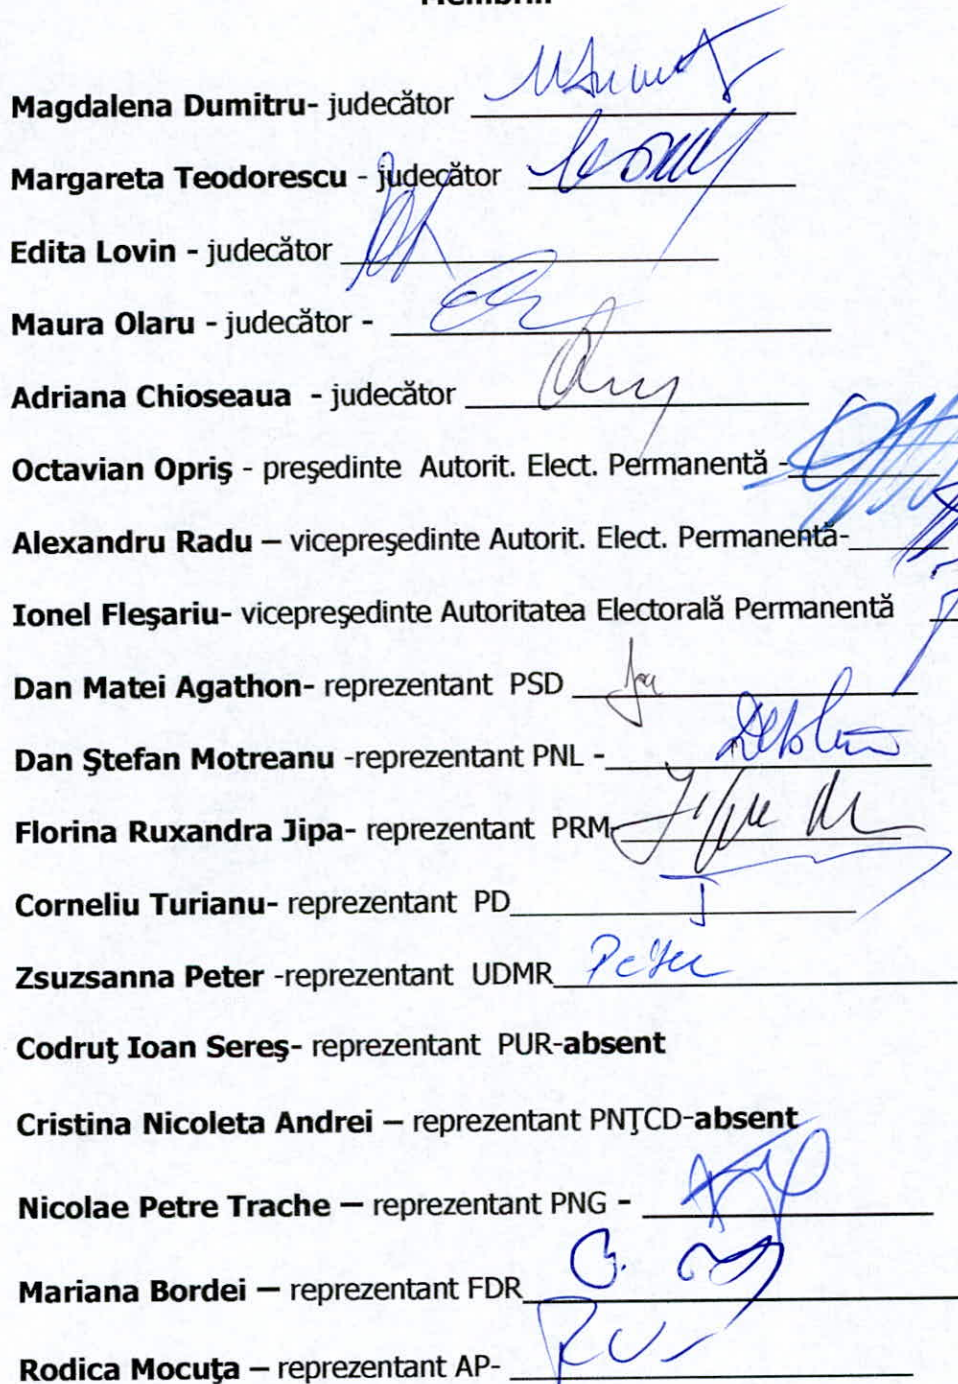 Magdalena Dumitru- judecător
Margareta Teodorescu - judecător
Edita Lovin - judecător
Maura Olaru - judecător -
Adriana Chioseaua - judecător
Octavian Opriş - preşedinte Autorit. Elect. Permanentă -
Alexandru Radu – vicepreşedinte Autorit. Elect. Permanentă-
Ionel Fleşariu- vicepreşedinte Autoritatea Electorală Permanentă
Dan Matei Agathon- reprezentant PSD
Dan Ştefan Motreanu -reprezentant PNL -
Florina Ruxandra Jipa- reprezentant PRM-
Corneliu Turianu- reprezentant PD
Zsuzsanna Peter -reprezentant UDMR Peter
Codruţ Ioan Sereş- reprezentant PUR-absent
Cristina Nicoleta Andrei – reprezentant PNŢCD-absent
Nicolae Petre Trache – reprezentant PNG -
Mariana Bordei – reprezentant FDR
Rodica Mocuţa – reprezentant AP-